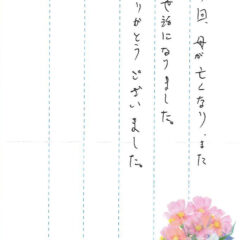 回、母が亡くなり、また
世話になりました。
りがとうございました。